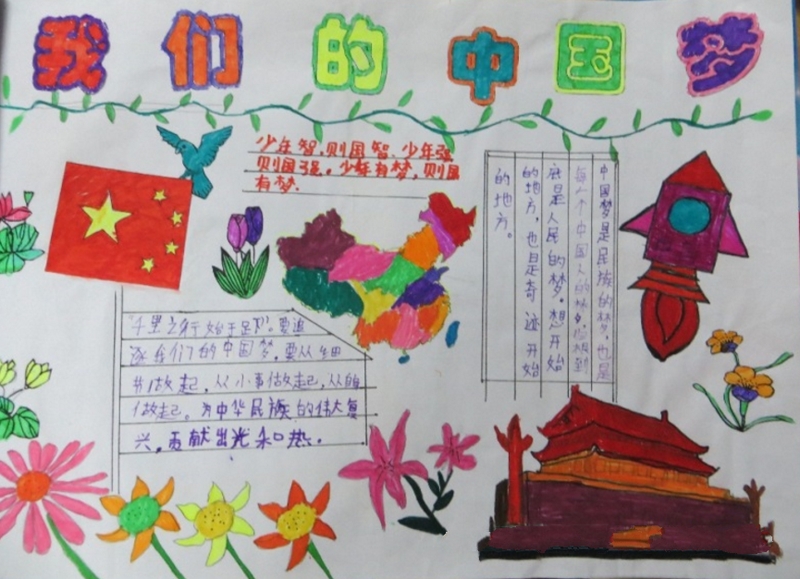 我们的中国梦
少年智,则国智,少年强
则国强。少年有梦,则国
有梦.
中国梦是民族的梦,也是
每个中国人的梦,
底是人民的梦。想开始
的地方,也是奇迹开始
的地方。
"千里之行始于足下"。要追
逐我们的中国梦,要从细
节做起,从小事做起,从
做起。为中华民族的伟大复
兴,贡献出光和热.